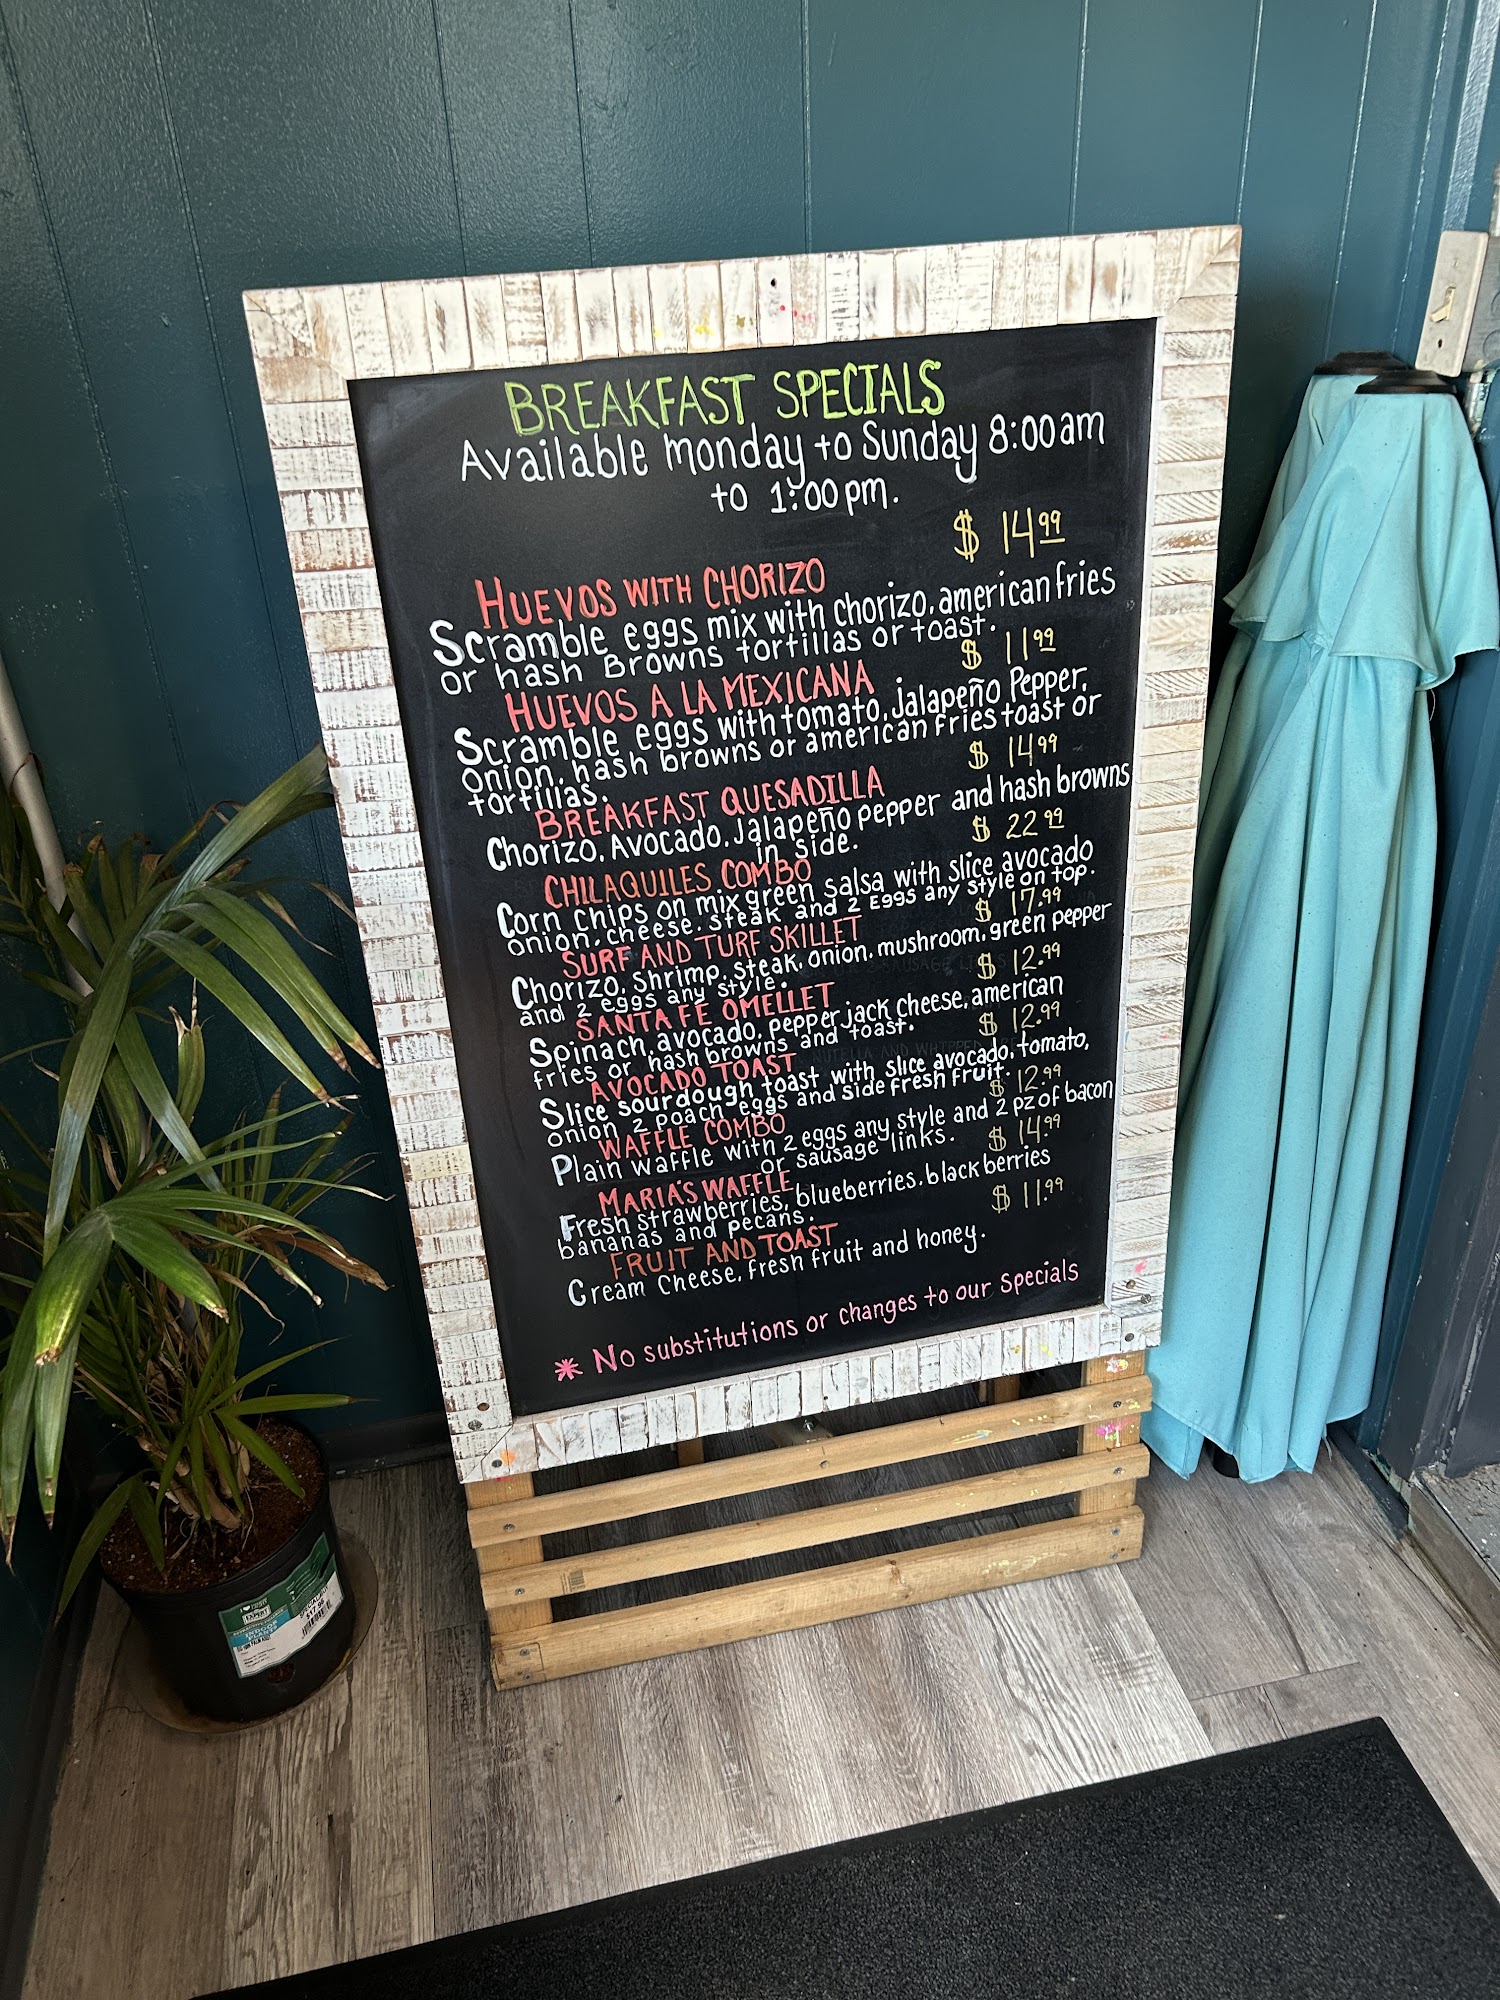 BREAKFAST SPECIALS
Available monday to Sunday 8:00am
to 1:00pm.
$ 14.99
HUEVOS WITH CHORIZO
Scramble eggs mix with chorizo, american fries
or hash Browns tortillas or toast.
$ 11.99
HUEVOS A LA MEXICANA
Scramble eggs with tomato, jalapeño Pepper,
onion, hash browns or american fries toast or
tortillas.
$ 14.99
BREAKFAST QUESADILLA
Chorizo, Avocado, Jalapeño pepper and hash browns
in side.
$ 22.99
CHILAQUILES COMBO
Corn chips on mix green salsa with slice avocado
onion, cheese, steak and 2 Eggs any style on top.
$ 17.99
SURF AND TURF SKILLET
Chorizo, Shrimp, Steak, onion, mushroom, green pepper
and 2 eggs any style.
$ 12.99
SANTA FE OMELLET
Spinach, avocado, pepper jack cheese, american
fries or hash browns and toast.
$ 12.99
AVOCADO TOAST
Slice sourdough toast with slice avocado, tomato,
onion 2 poach eggs and side fresh fruit.
$ 12.99
WAFFLE COMBO
Plain waffle with 2 eggs any style and 2 pz of bacon
or sausage links.
$ 14.99
MARIA'S WAFFLE
Fresh strawberries, blueberries, black berries
bananas and pecans.
$ 11.99
FRUIT AND TOAST
Cream Cheese, fresh fruit and honey.
* No substitutions or changes to our Specials
EXPERT
INDOOR
PLANTS